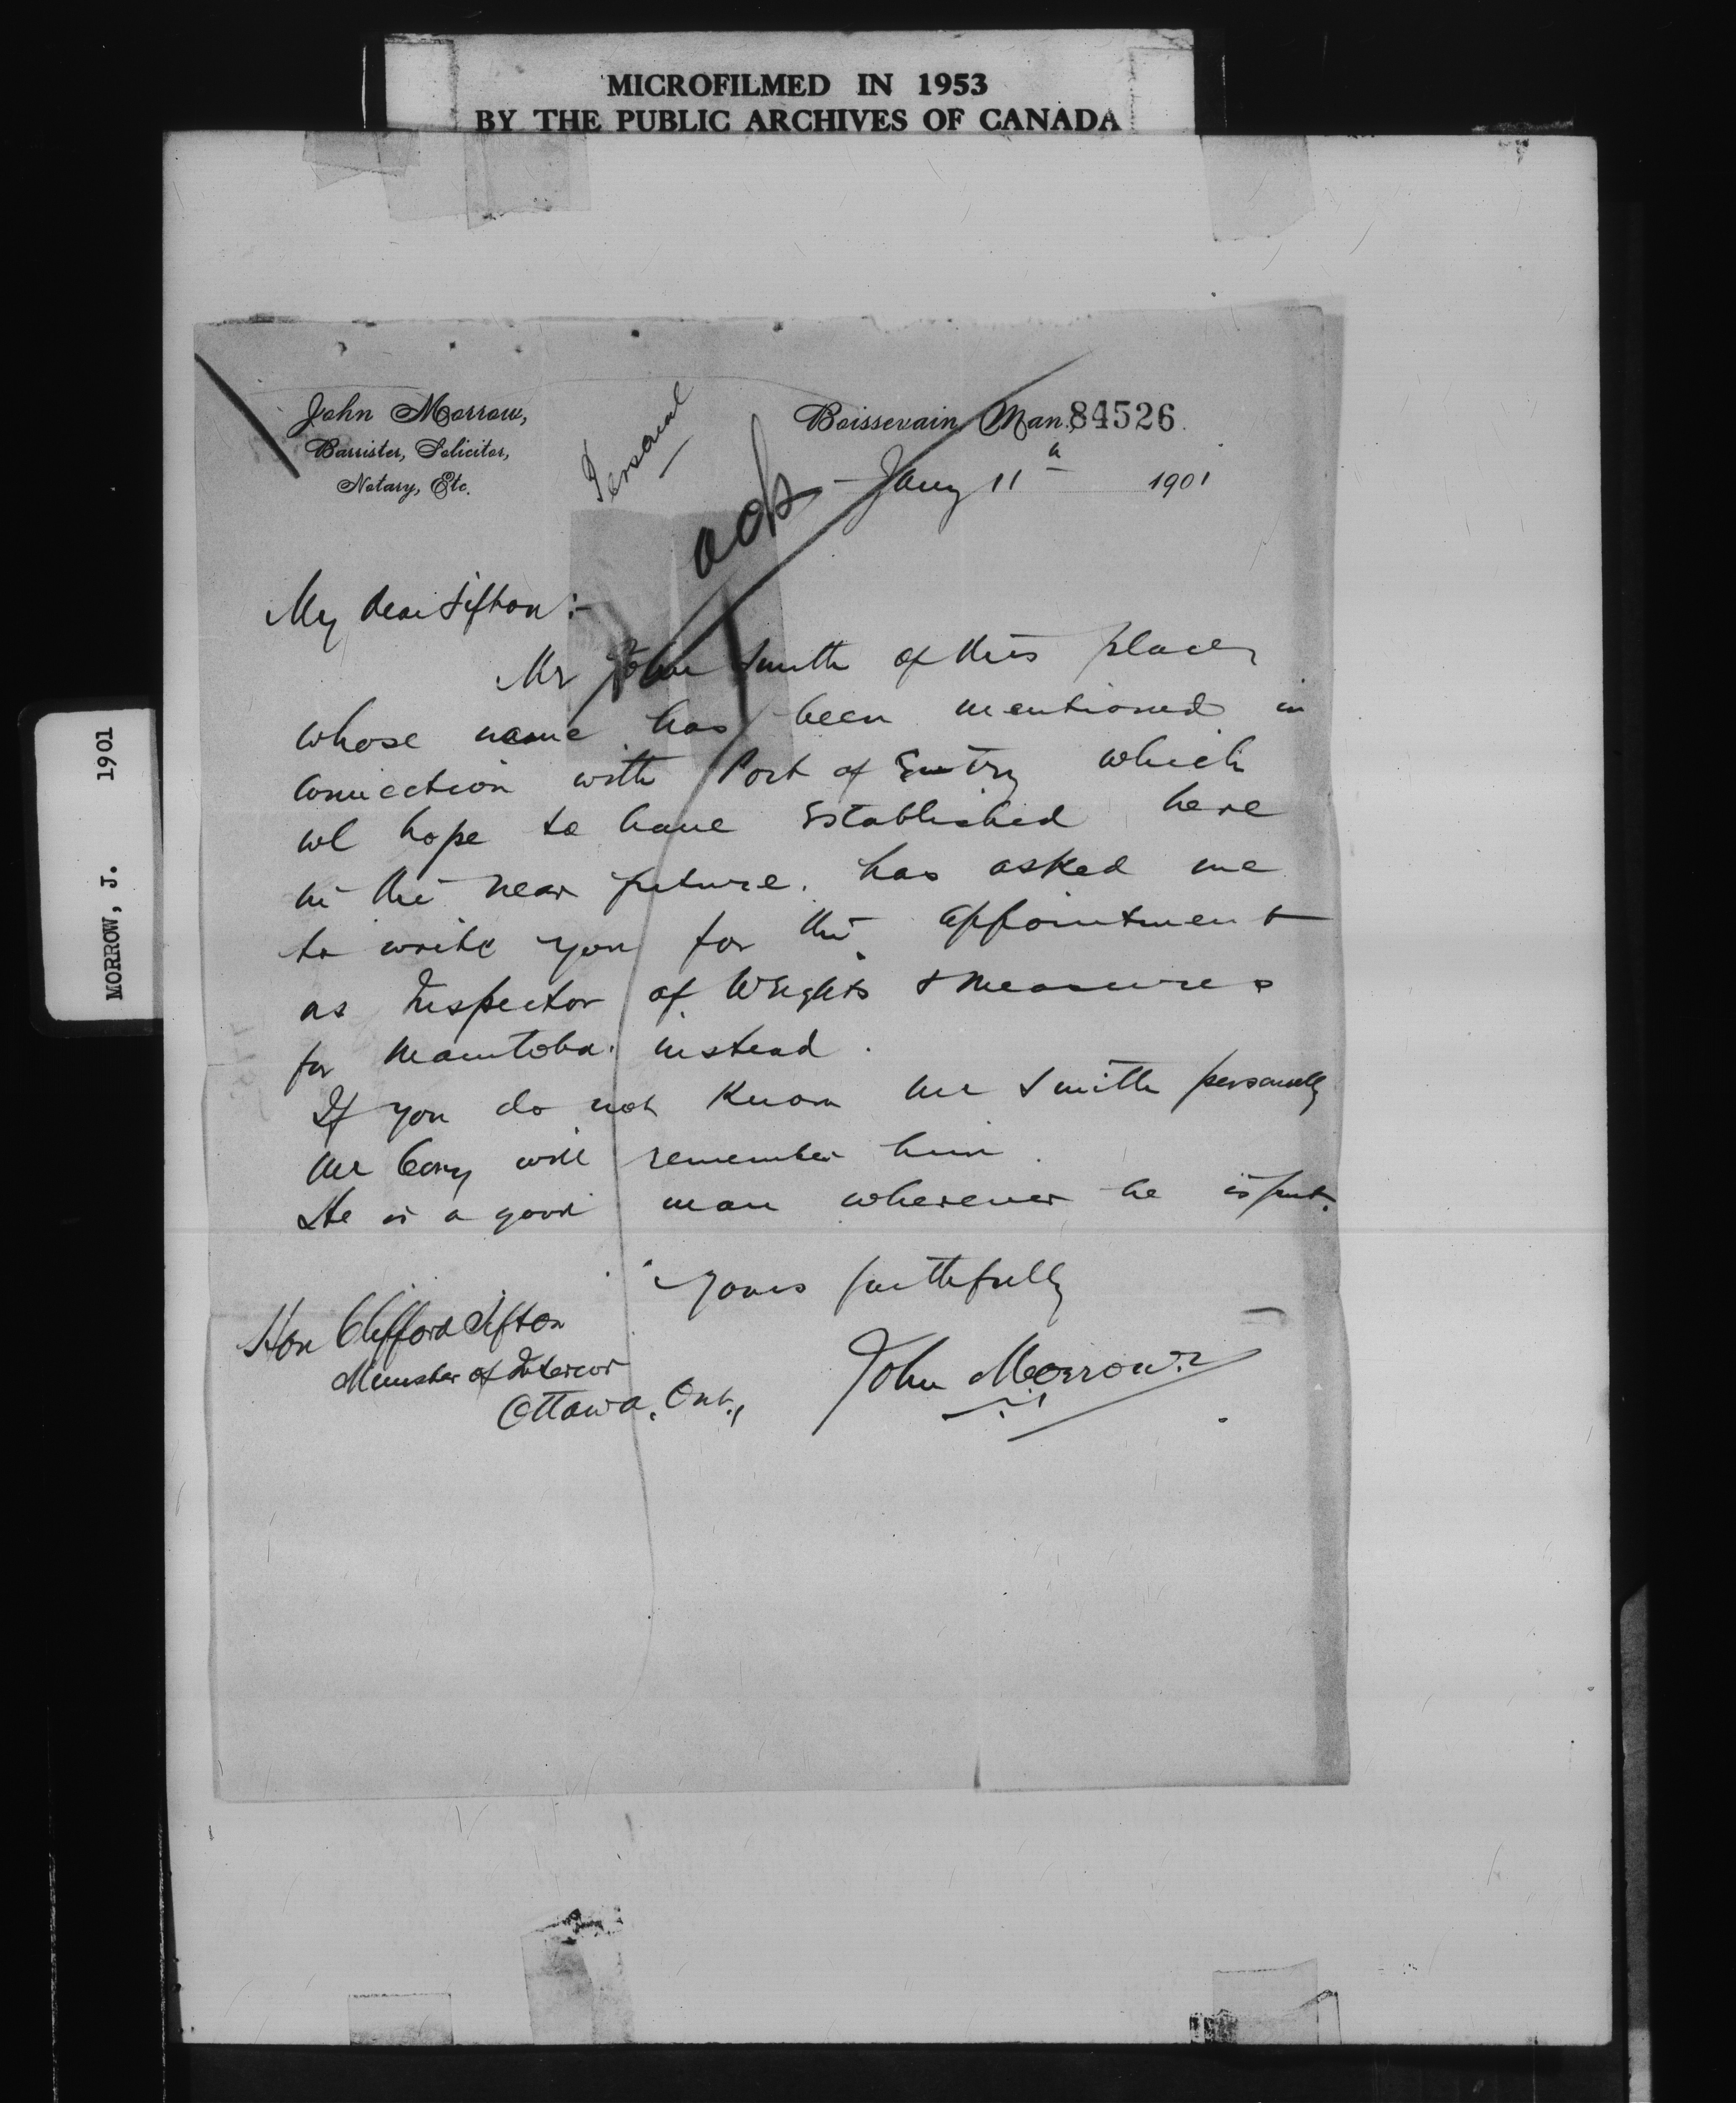 MICROFILMED IN 1953
BY THE PUBLIC ARCHIVES OF CANADA
MORROW, J. 1901
John Morrow,
Barrister, Solicitor,
Notary, Etc.
Personal
ack
Boissevain, Man. 84526
Jany 11th 1901
My dear Sifton :-
Mr John Smith of this place,
whose name has been mentioned in
connection with Port of Entry which
we hope to have established here
in the near future. has asked me
to write you for the appointment
as Inspector of Weights & Measures
for Manitoba. instead.
If you do not know Mr Smith personally
Mr Cory will remember him.
He is a good man wherever he is put.
Yours faithfully
John Morrow
Hon Clifford Sifton
Minister of Interior
Ottawa, Ont.,